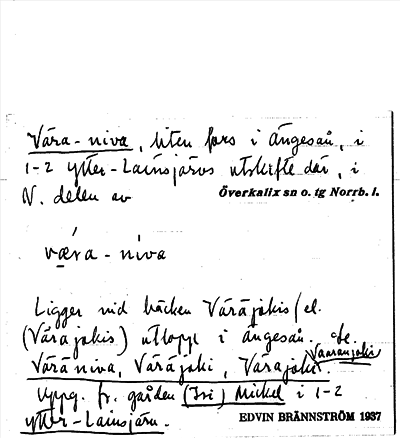 Vära-niva, liten fors i Ängesån, i
1-2 Ytter-Lainsjärvs utskifte där, i
N. delen av Överkalix sn o. tg Norrb. l.
væra-niva
Ligger vid bäcken Väräjokis (el.
(Värajokis) utlopp i Ängesån. Se.
Väräniva, Väräjoki, Värajoki. Vaaranjoki
Uppg. fr. gården (Isi) Mickel i 1-2
Ytter-Lainsjärv.
EDVIN BRÄNNSTRÖM 1937